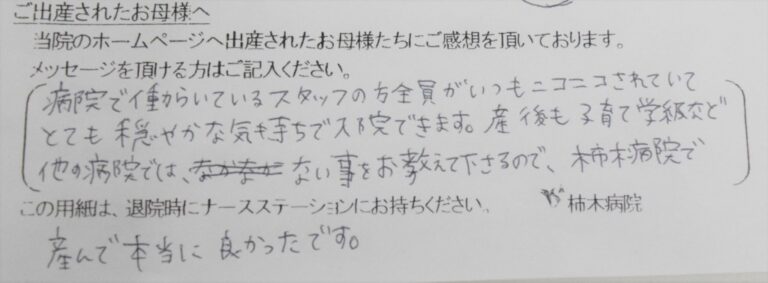 ご出産されたお母様へ
当院のホームページへ出産されたお母様たちにご感想を頂いております。
メッセージを頂ける方はご記入ください。
病院で働らいているスタッフの方全員がいつもニコニコされていて
とても穏やかな気持ちで入院できます。産後も子育て学級など
他の病院では、なかなか ない事をお教えて下さるので、柿木病院で
この用紙は、退院時にナースステーションにお持ちください。 柿木病院
産んで本当に良かったです。